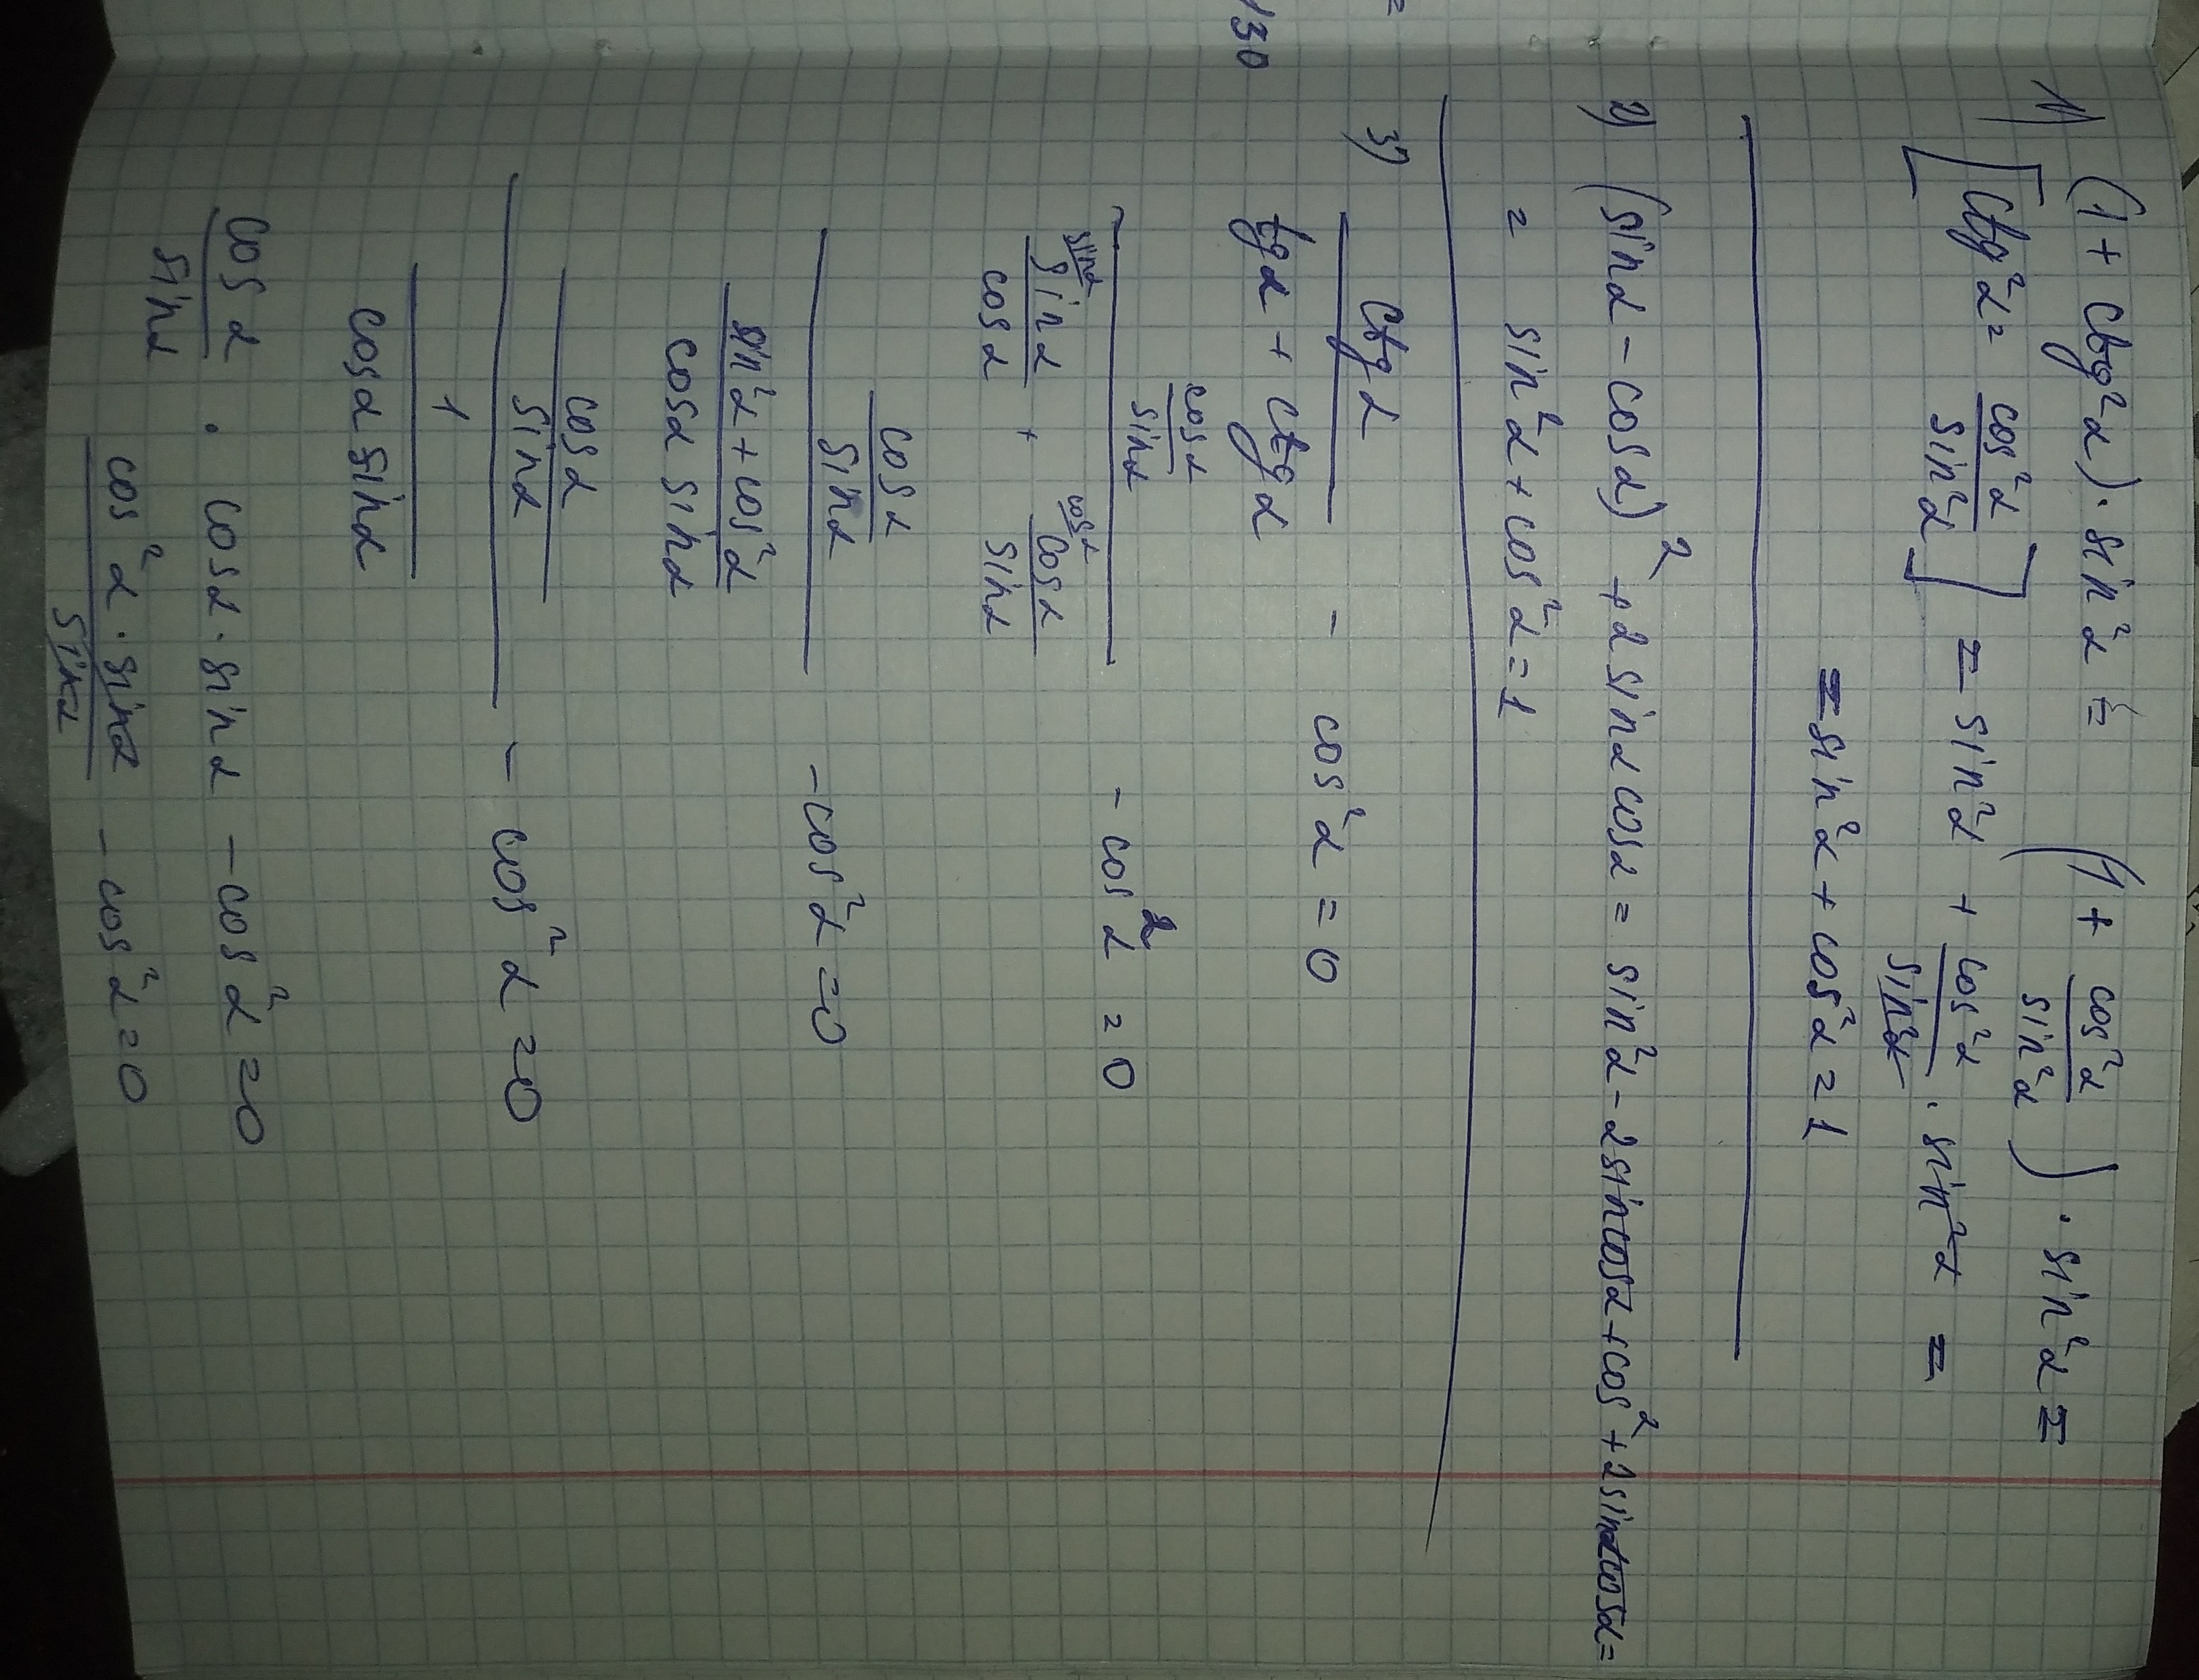 1) (1 + ctg²α) · sin²α = (1 + cos²α/sin²α) · sin²α =
[ctg²α = cos²α/sin²α] = sin²α + cos²α/sin²α · sin²α =
= sin²α + cos²α = 1
2) (sinα - cosα)² + 2 sinα cosα = sin²α - 2sincosα + cos² + 2sinαcosα =
= sin²α + cos²α = 1
3) ctgα/(tgα + ctgα) - cos²α = 0
130
(cosα/sinα)/(sinα/cosα + cosα/sinα) - cos²α = 0
(cosα/sinα)/((sin²α + cos²α)/(cosα sinα)) - cos²α = 0
(cosα/sinα)/(1/(cosα sinα)) - cos²α = 0
cosα/sinα · cosα · sinα - cos²α = 0
(cos²α · sinα)/sinα - cos²α = 0